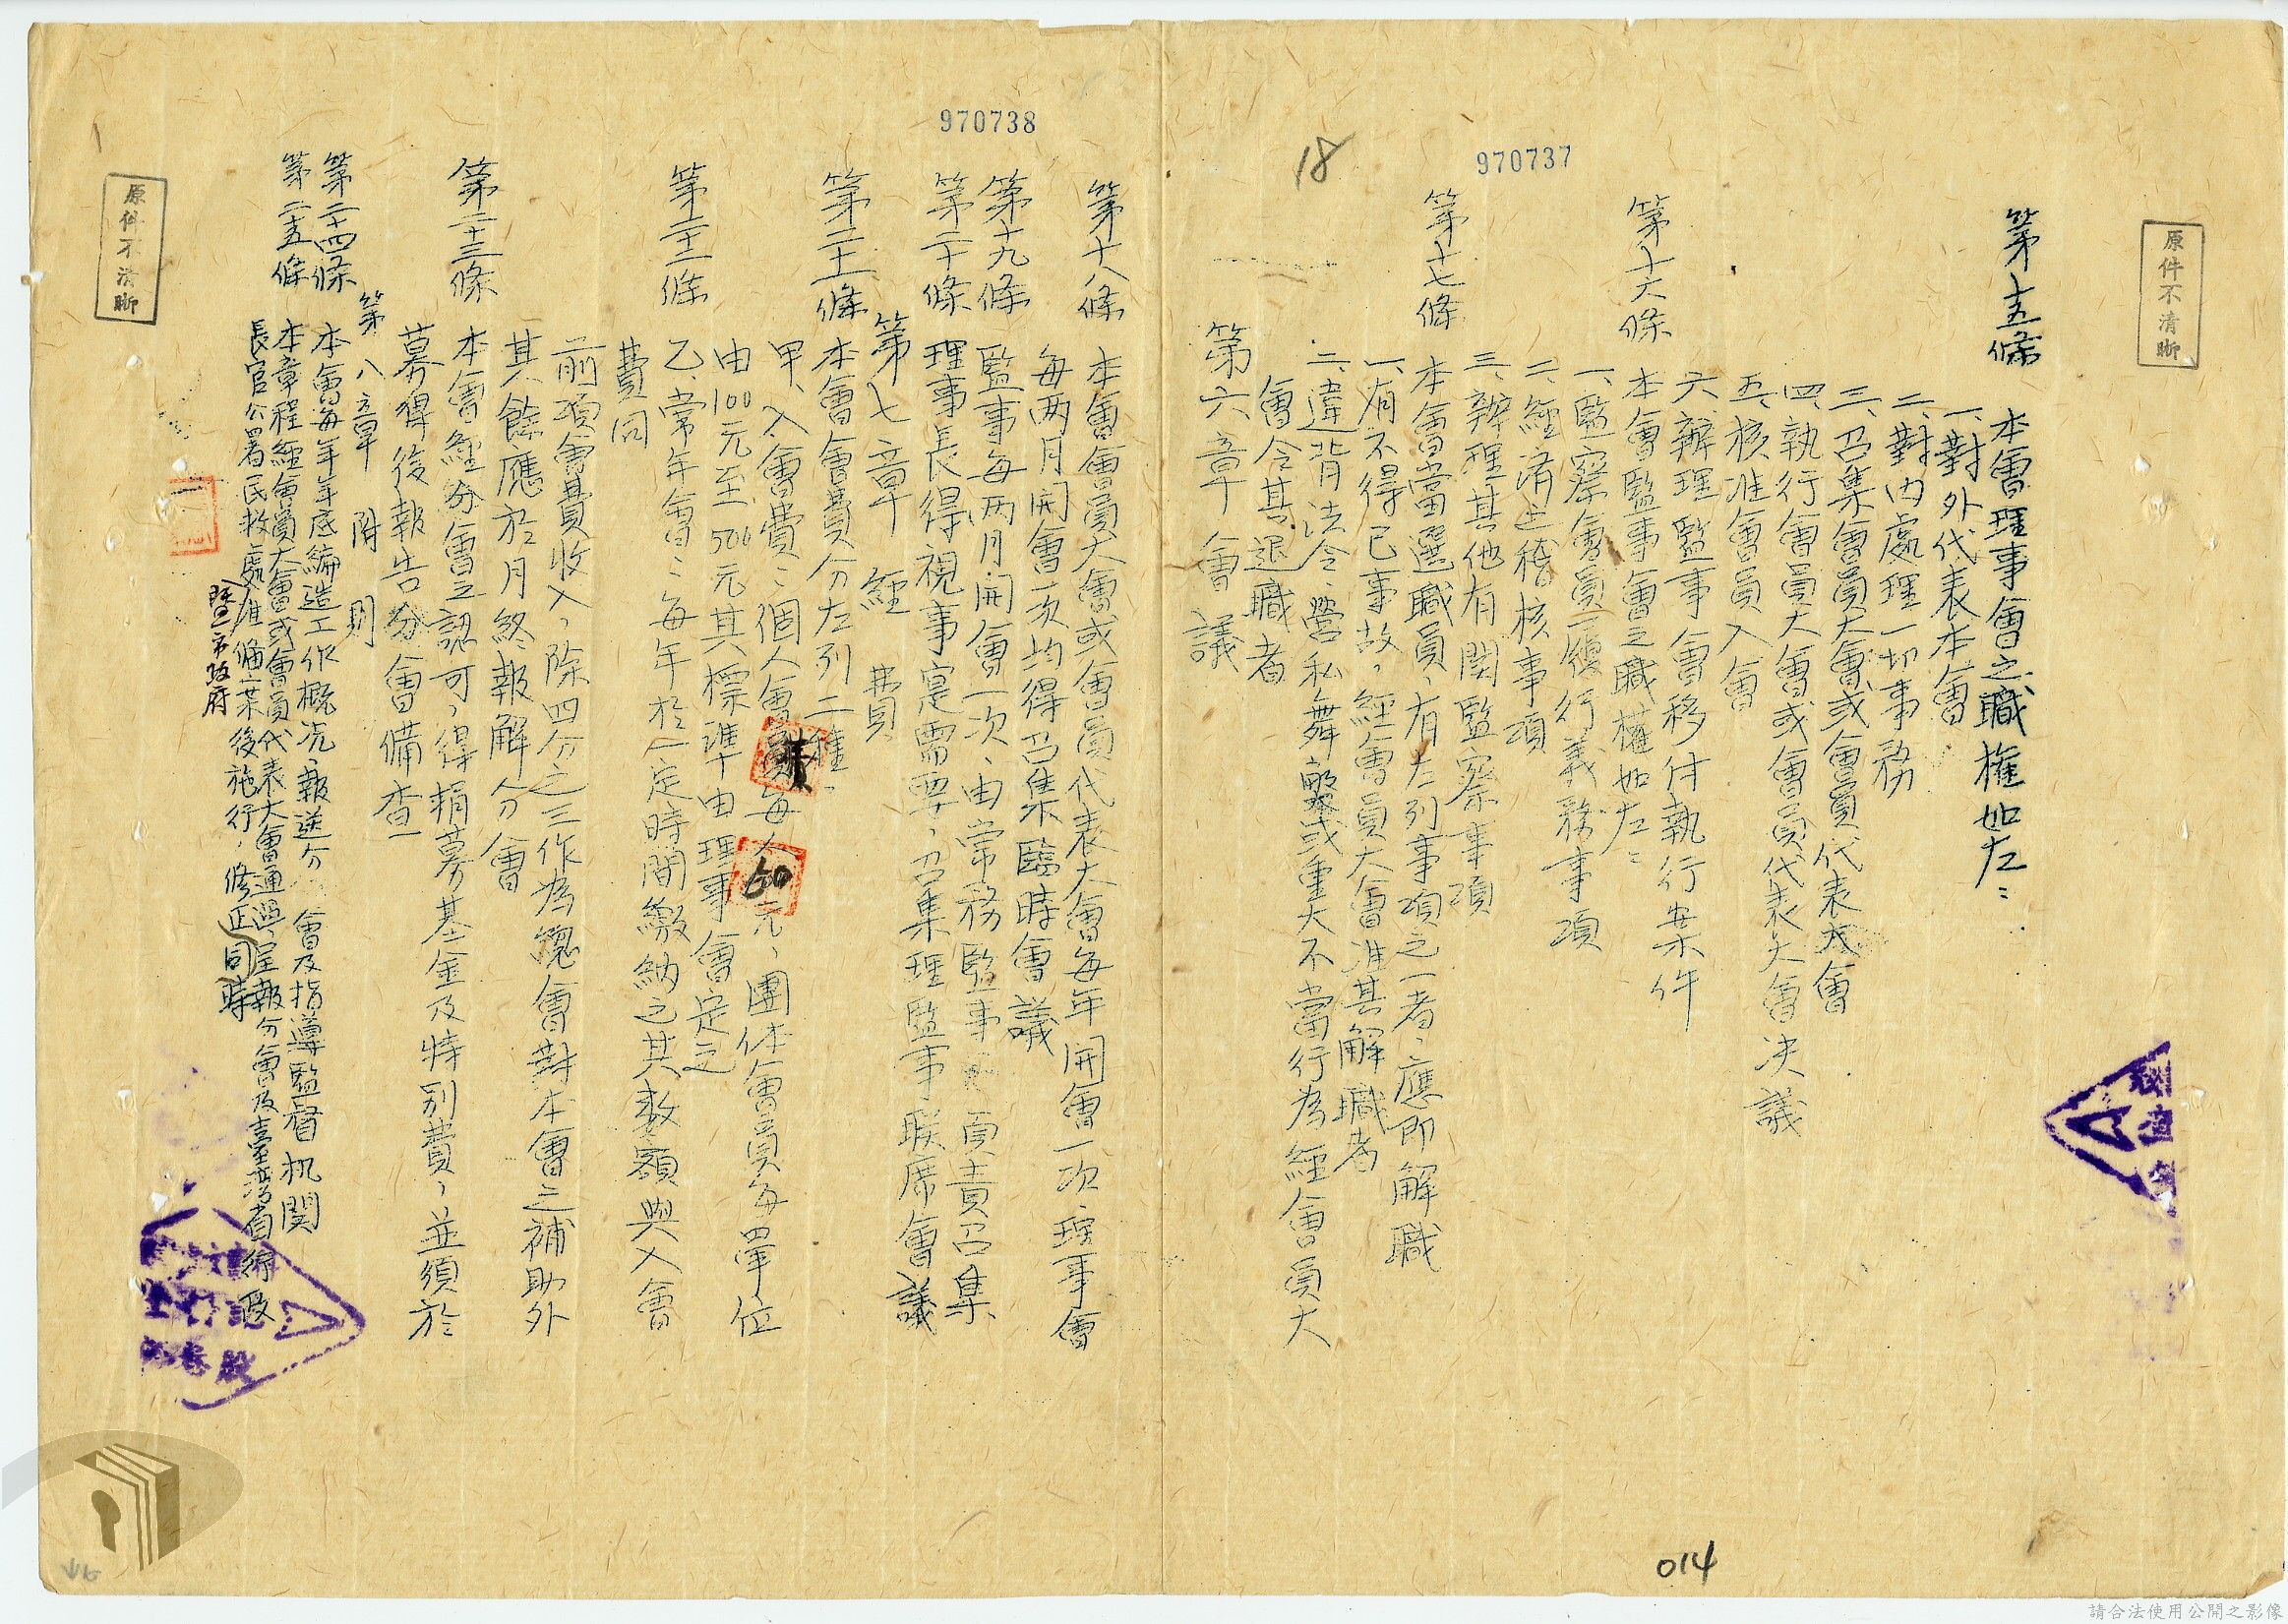 970737
18
原件不清晰
第十五條
本會理事會之職權如左：
一、對外代表本會
二、對內處理一切事務
三、召集會員大會或會員代表大會
四、執行會員大會或會員代表大會決議
五、核准會員入會
六、辦理監事會移付執行案件
第十六條
本會監事會之職權如左：
一、監察會員履行義務事項
二、經濟之稽核事項
三、辦理其他有関監察事項
第十七條
本會當選職員、有左列事項之一者、應即解職
一、有不得已事故、經會員大會准其解職者
二、違背法令、營私舞弊或重大不當行為經會員大
會令其退職者
第六章 會議
014
970738
第十八條
本會會員大會或會員代表大會每年開會一次、理事會
每两月開會一次均得召集臨時會議
第十九條
監事每两月開會一次、由常務監事負責召集
第二十條
理事長得視事寔需要、召集理監事联席會議
第七章 經費
第二十一條
本會會費分左列二種、
甲、入會費：個人會員每人60元、團体會員每單位
由100元至500元其標準由理事會定之
乙、常年會：每年於一定時間繳納之其數額與入會
費同
第二十二條
前項會費收入、除四分之三作為總會對本會之補助外
其餘應於月終報解分會
第二十三條
本會經分會之認可、得捐募基金及特别費、並須於
募得後報告分會備查
第八章 附則
第二十四條
本會每年年底編造工作概况、報送分會及指導監督机関
第二十五條
本章程經會員大會或會員代表大會通過、呈報分會及臺灣省行政
長官公署民政處准備案後施行、修正同時
暨市政府
原件不清晰
請合法使用公開之影像